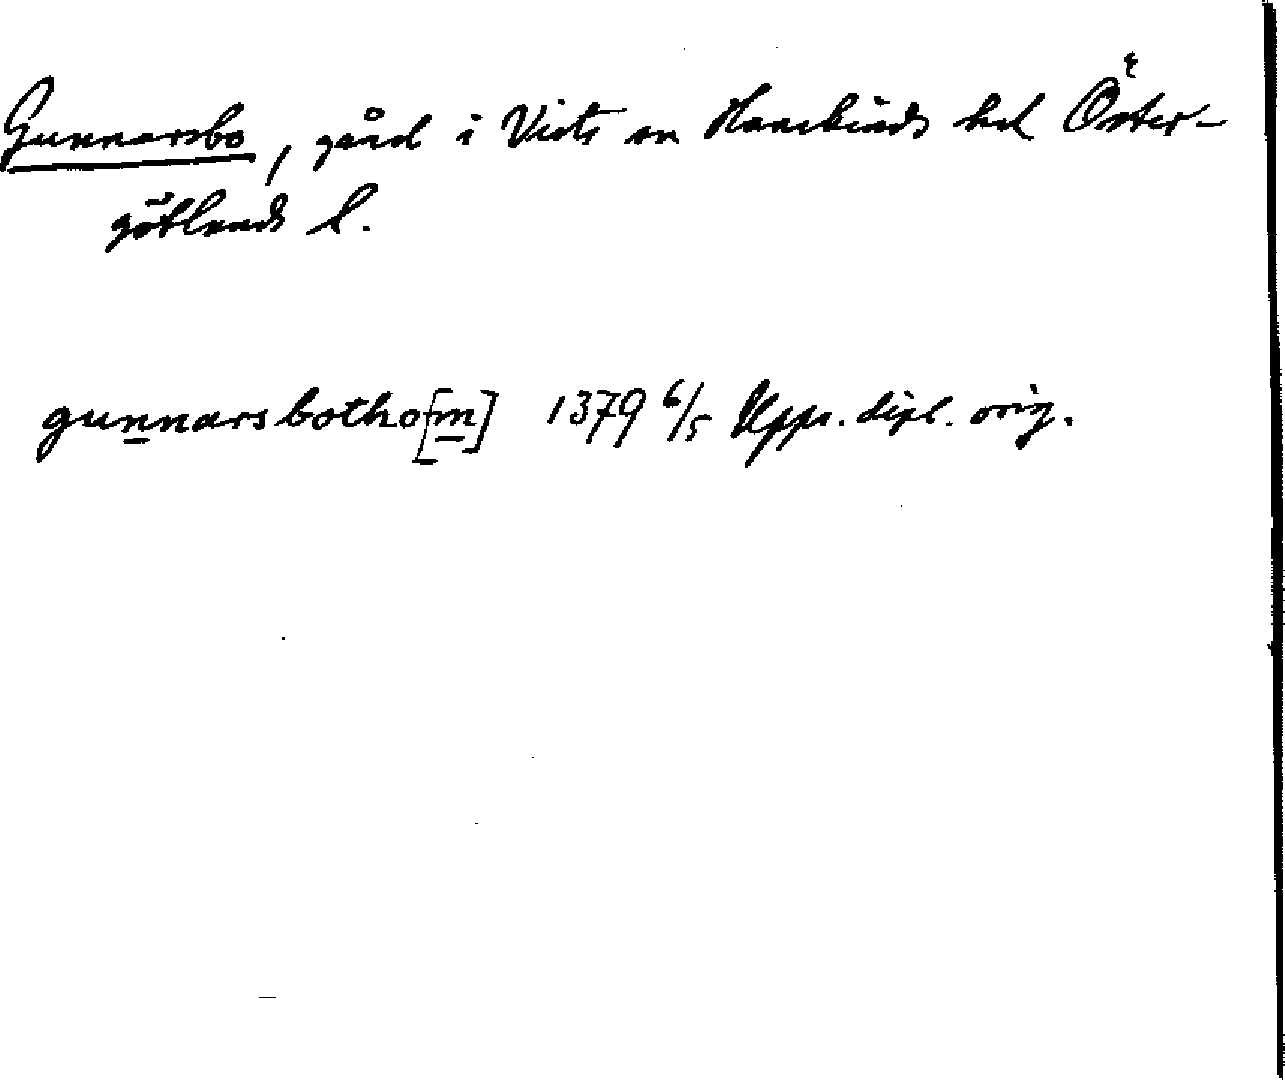 Gunnarsbo, gård i Vists sn Hanekinds hd Öster-
götlands l.
gunnarsbotho[m] 1379 6/5 Upps. dipl. orig.